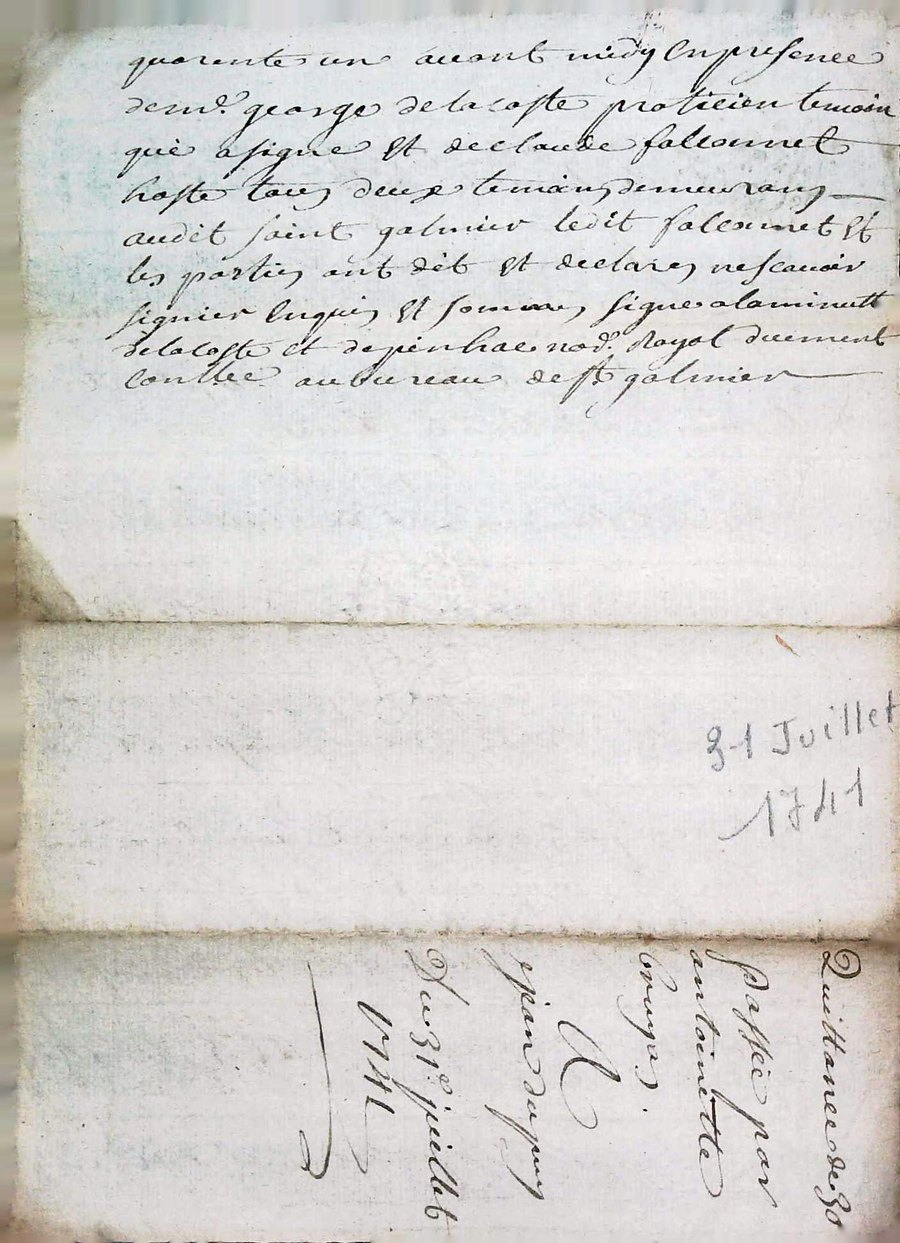 quarente un avant midy En presence
de mr. george delacoste praticien temoin
qui a signe Et de claude falconnet
hoste tous deux temoins demeurans
audit saint galmier ledit falconnet Et
les parties ont dit Et declares ne scavoir
signier Enquis Et sommes signe a la minutt
delacoste et depinhac nore. Royal duement
conlle au bureau de st galmier
31 Juillet
1741
Quittance de 30
passée par
antoinette
bruyas.
A
jean dupuy
Du 31e. juillet
1741